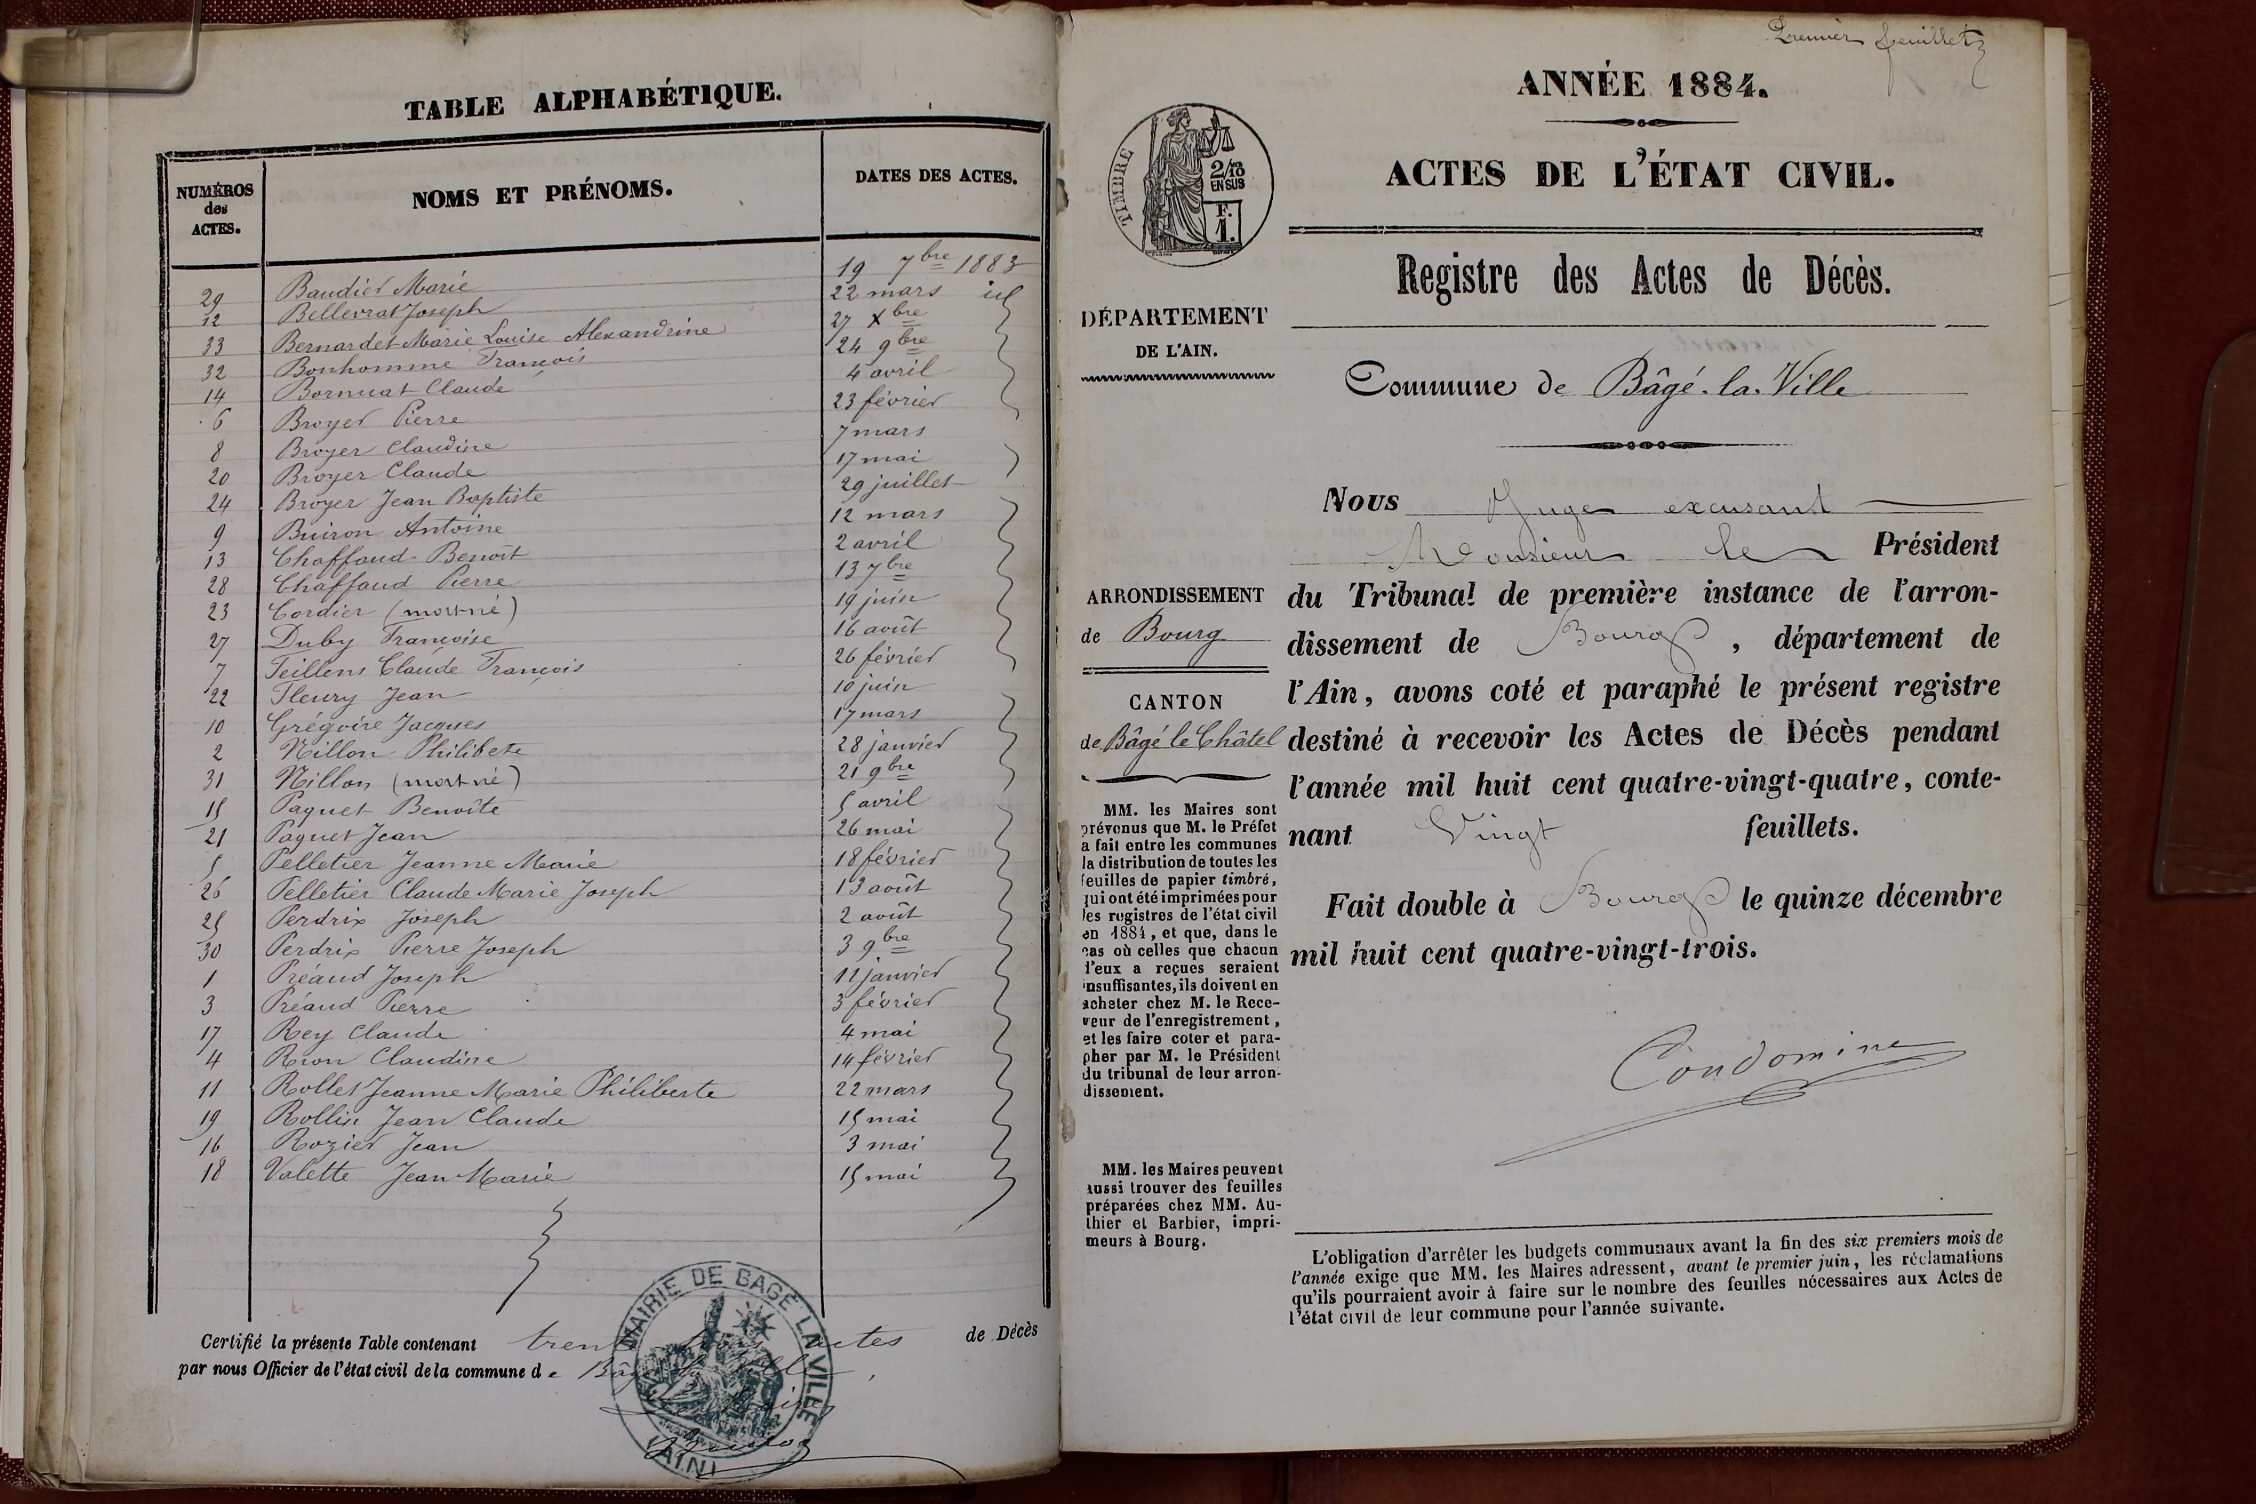 TABLE ALPHABÉTIQUE.
NUMÉROS des ACTES. NOMS ET PRÉNOMS. DATES DES ACTES.
29 Baudier Marie 19 7bre 1883
12 Bellevrat Joseph 22 mars id
33 Bernardet Marie Louise Alexandrine 27 Xbre
32 Bonhomme François 24 9bre
14 Bornuat Claude 4 avril
6 Broyer Pierre 23 février
8 Broyer Claudine 7 mars
20 Broyer Claude 17 mai
24 Broyer Jean Baptiste 29 juillet
9 Buiron Antoine 12 mars
13 Chaffaud Benoît 2 avril
28 Chaffaud Pierre 13 7bre
23 Cordier (mort né) 19 juin
27 Duby Françoise 16 août
7 Feillens Claude François 26 février
22 Fleury Jean 10 juin
10 Grégoire Jacques 17 mars
2 Nillon Philibete 28 janvier
31 Nillon (mort né) 21 9bre
15 Paquet Benoîte 5 avril
21 Paquet Jean 26 mai
5 Pelletier Jeanne Marie 18 février
26 Pelletier Claude Marie Joseph 13 août
25 Perdrix Joseph 2 août
30 Perdrix Pierre Joseph 3 9bre
1 Préaud Joseph 11 janvier
3 Préaud Pierre 3 février
17 Rey Claude 4 mai
4 Rion Claudine 14 février
11 Rollet Jeanne Marie Philiberte 22 mars
19 Rollin Jean Claude 15 mai
16 Rozier Jean 3 mai
18 Valette Jean Marie 15 mai
Certifié la présente Table contenant trente actes de Décès
par nous Officier de l'état civil de la commune de Bâgé
MAIRIE DE BAGÉ LA VILLE
(AIN)
Premier feuillet
ANNÉE 1884.
ACTES DE L'ÉTAT CIVIL.
TIMBRE
2/10
EN SUS
F.
1.
Registre des Actes de Décès.
DÉPARTEMENT
DE L'AIN.
Commune de Bâgé-la-Ville
Nous Juge excusant
Monsieur le Président
du Tribunal de première instance de l'arron-
dissement de Bourg, département de
l'Ain, avons coté et paraphé le présent registre
destiné à recevoir les Actes de Décès pendant
l'année mil huit cent quatre-vingt-quatre, conte-
nant Vingt feuillets.
Fait double à Bourg le quinze décembre
mil huit cent quatre-vingt-trois.
Condomine
ARRONDISSEMENT
de Bourg
CANTON
de Bâgé le Châtel
MM. les Maires sont
prévenus que M. le Préfet
a fait entre les communes
la distribution de toutes les
feuilles de papier timbré,
qui ont été imprimées pour
les registres de l'état civil
en 1884, et que, dans le
cas où celles que chacun
d'eux a reçues seraient
insuffisantes, ils doivent en
acheter chez M. le Rece-
veur de l'enregistrement,
et les faire coter et para-
pher par M. le Président
du tribunal de leur arron-
dissement.
MM. les Maires peuvent
aussi trouver des feuilles
préparées chez MM. Au-
thier et Barbier, impri-
meurs à Bourg.
L'obligation d'arrêter les budgets communaux avant la fin des six premiers mois de
l'année exige que MM. les Maires adressent, avant le premier juin, les réclamations
qu'ils pourraient avoir à faire sur le nombre des feuilles nécessaires aux Actes de
l'état civil de leur commune pour l'année suivante.